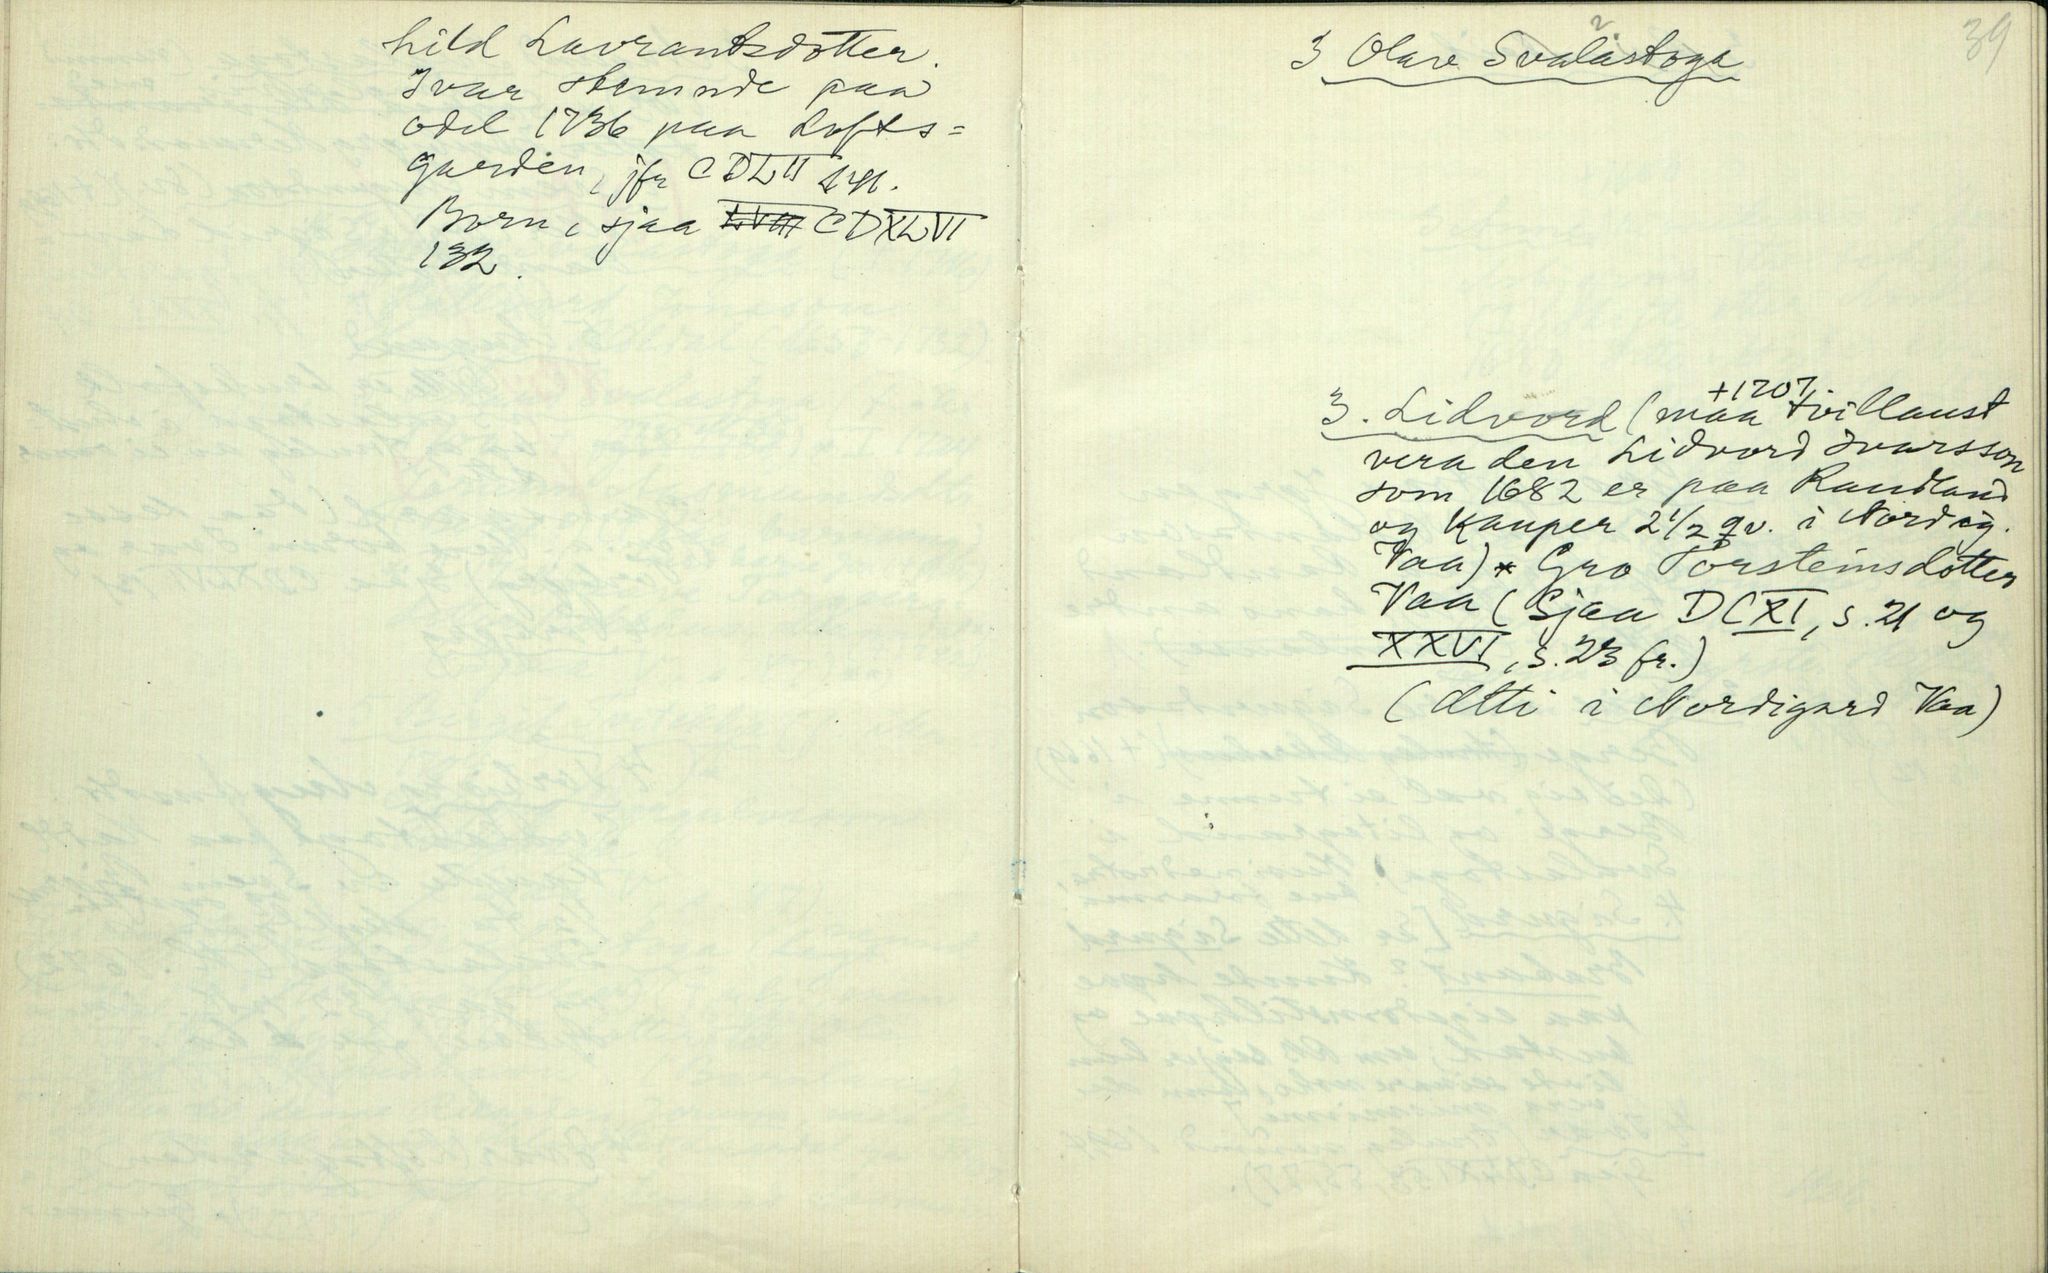 hild Lavrantsdotter.
Ivar stemnde paa
odel 1736 paa Lofts=
garden, jfr CDLII
Born, sjaa CDXLVI
132.
39
2
3 Olav Svalastoga
+1707
3. Lidvord (maa tvillaust
vera den Lidvord Ivarsson
som 1682 er paa Raudland
og kauper 2 1/2 qv. i Nordig.
Vaa) * Gro Torsteinsdotter
Vaa (Sjaa DCXI, s. 21 og
XXVI, s. 23 fr.)
(Ætti i Nordigard Vaa)